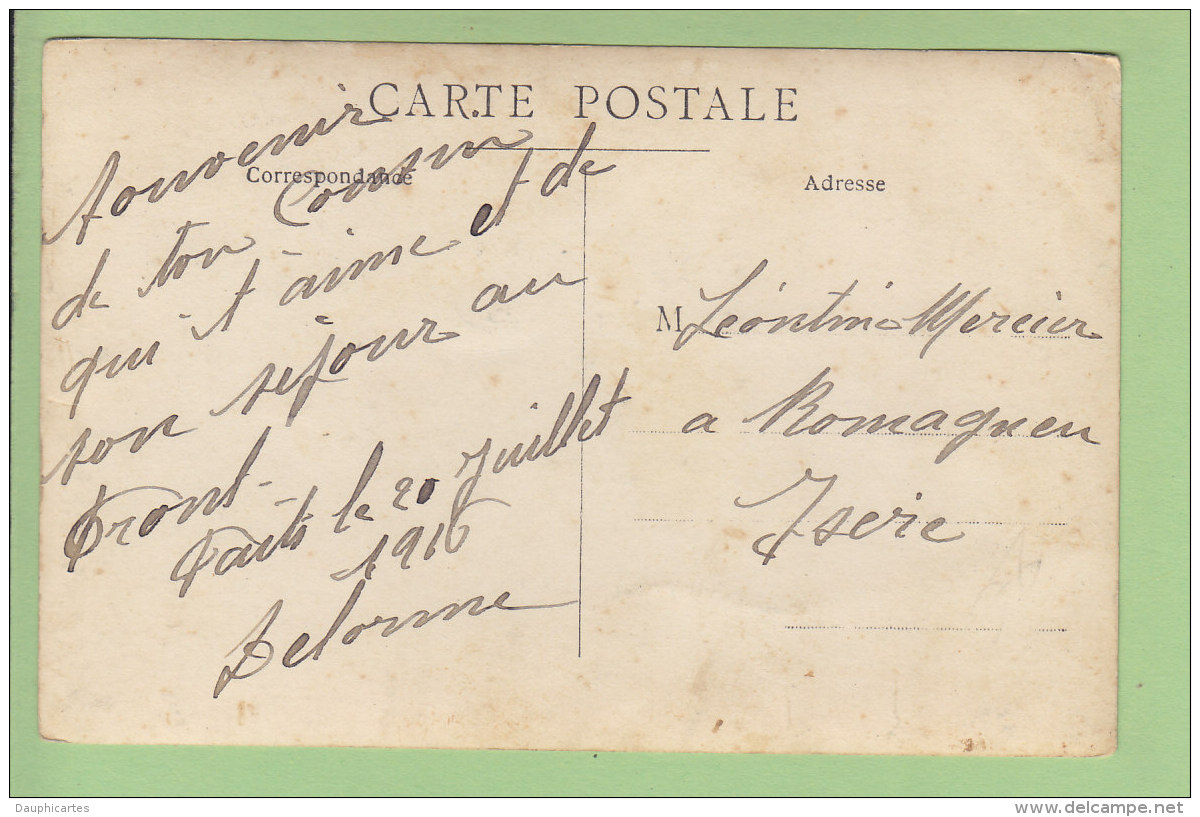 CARTE POSTALE
Correspondance
Adresse
Souvenir
de ton Cousin
qui t'aime et de
son séjour au
Front.
Faits le 20 Juillet
1916
Delorme
M Léontine Mercier
a Romagneu
Isere
Dauphicartes
www.delcampe.net